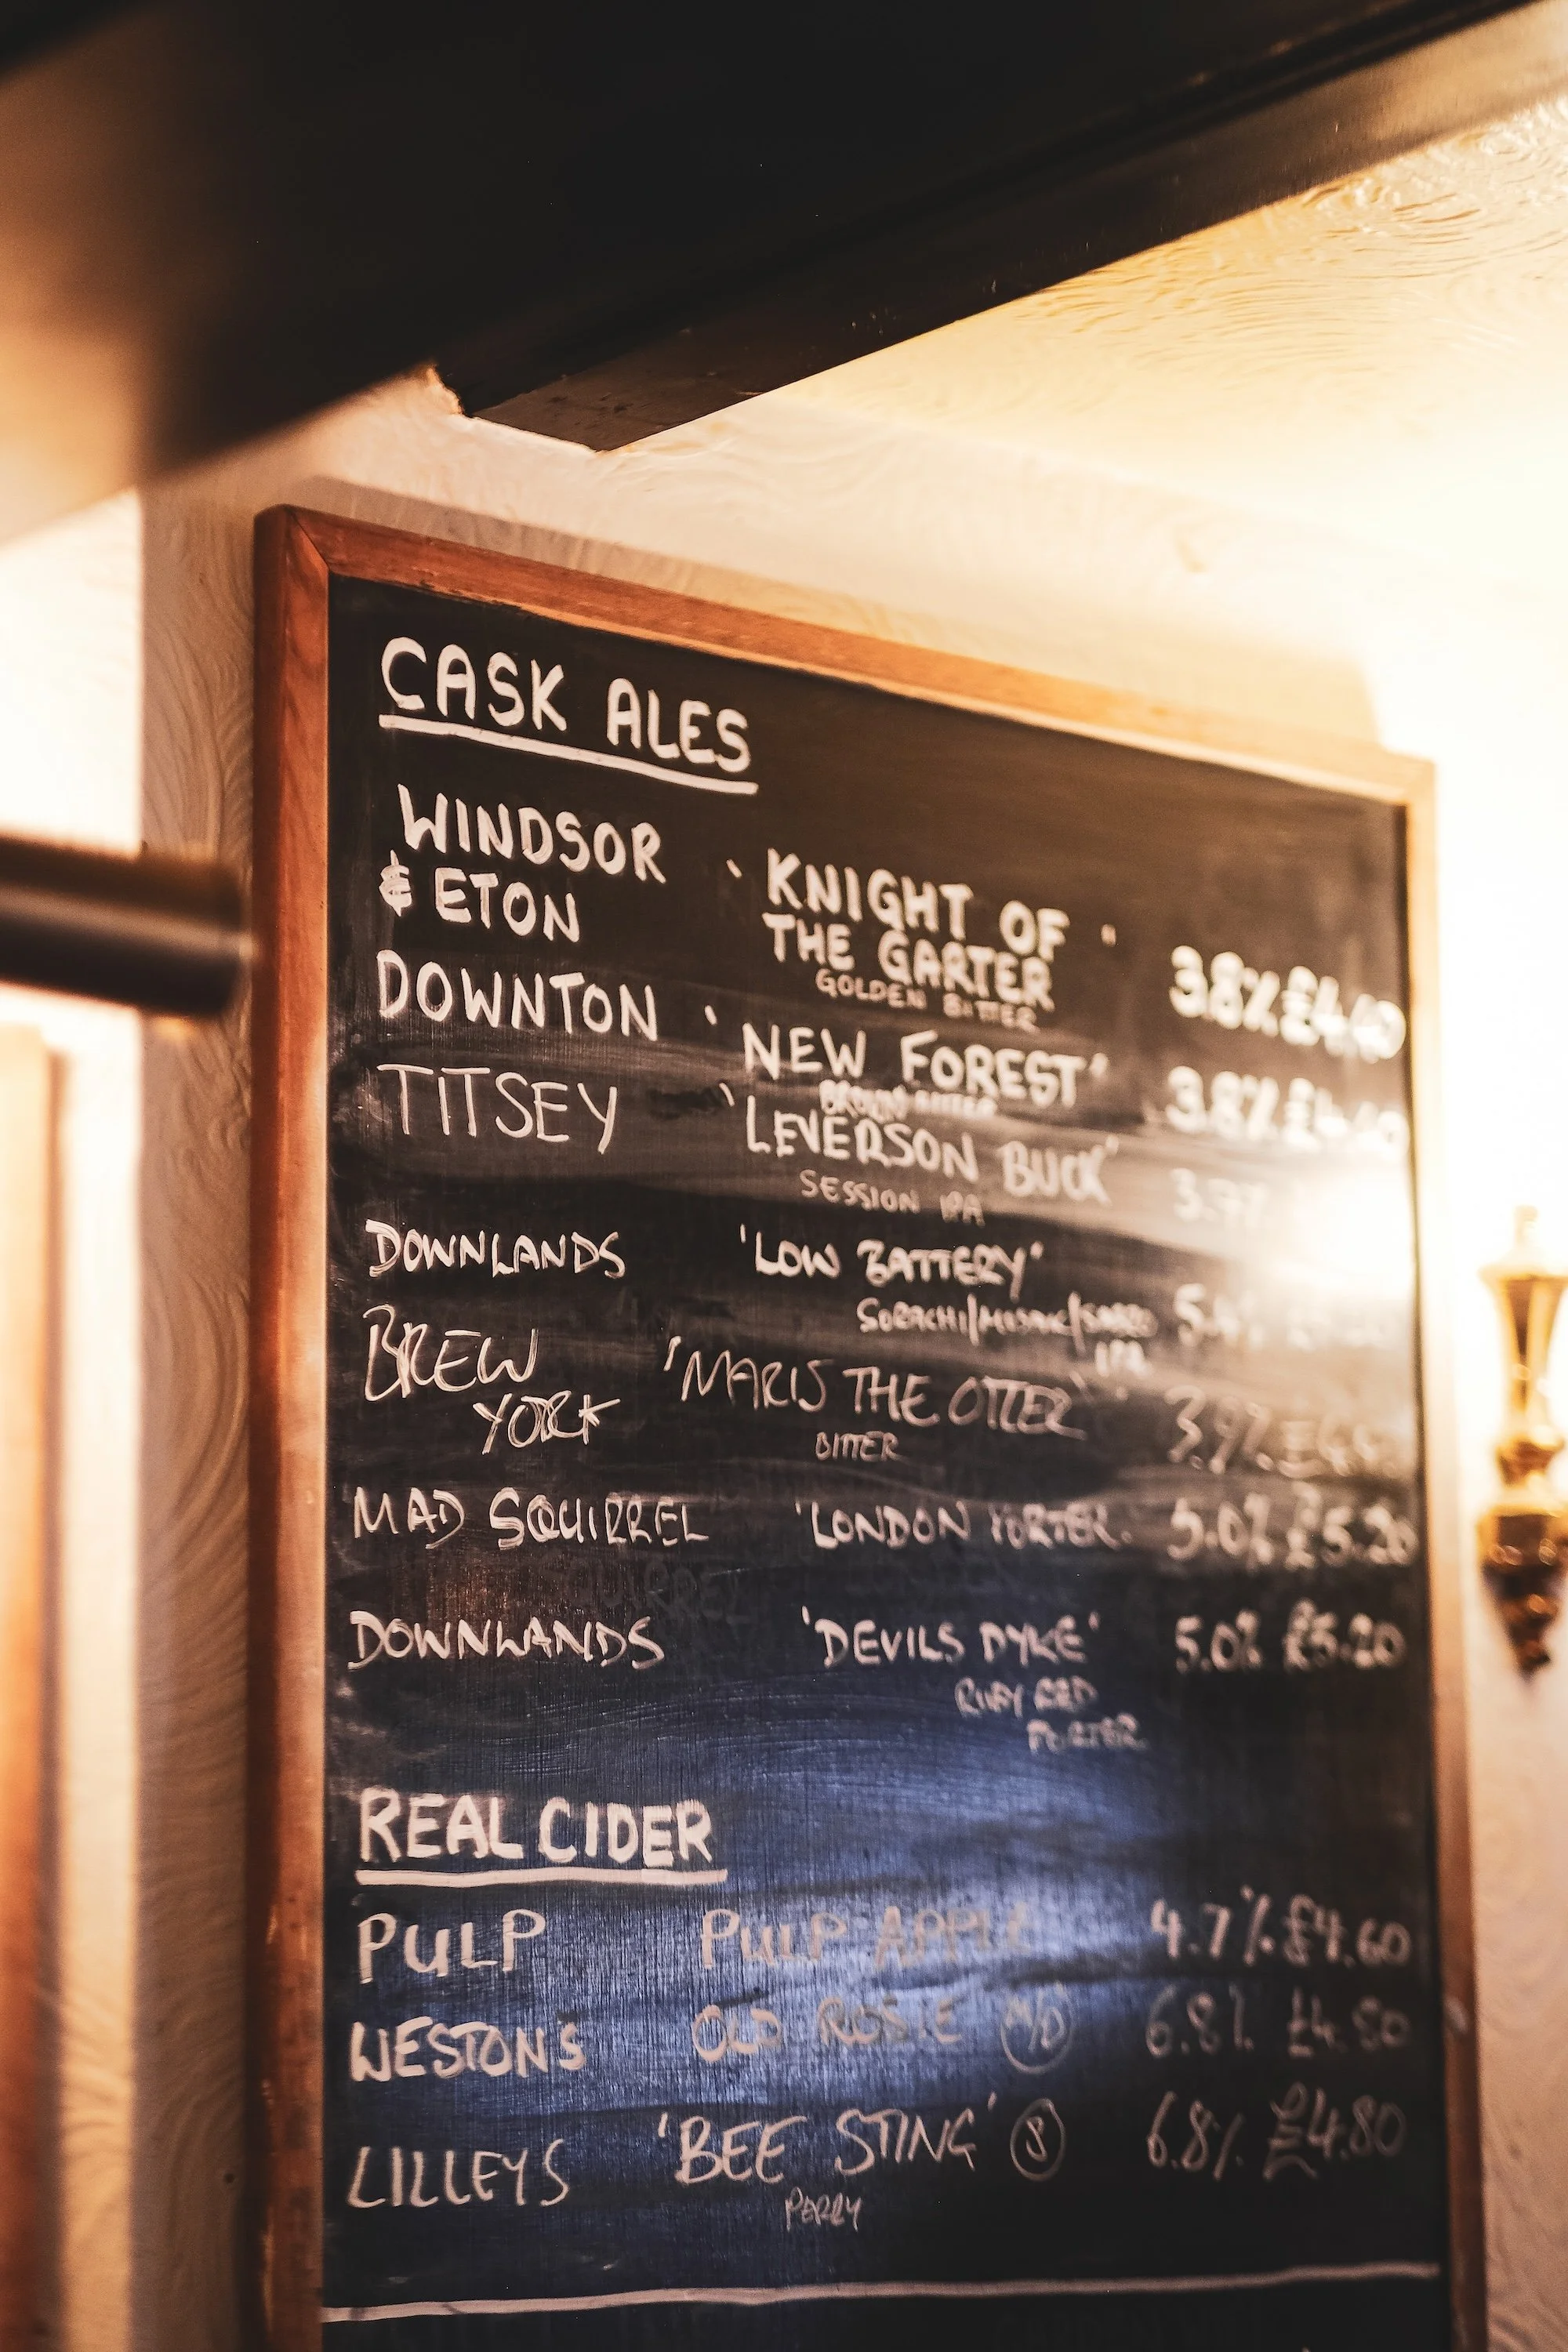 CASK ALES
WINDSOR
& ETON
'KNIGHT OF "
THE GARTER
GOLDEN BITTER
3.8% £4.40
DOWNTON
'NEW FOREST'
3.8%
TITSEY
'LEVERSON BUCK'
SESSION IPA
DOWNLANDS
'LOW BATTERY'
SORACHI/MOSAIC/SABRO
IPA
BREW
YORK
'MARIS THE OTTER'
BITTER
3.9%
MAD SQUIRREL
'LONDON PORTER.
5.0% £5.20
DOWNLANDS
'DEVILS DYKE'
5.0% £5.20
RED
PORTER
REAL CIDER
PULP PULP APPLE 4.7% £4.60
WESTONS OLD ROSIE M/D 6.8% £4.80
LILLEYS 'BEE STING' S 6.8% £4.80
PERRY